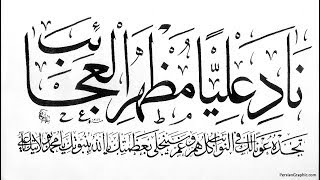 نادِ عَلِیًّا مَظْهَرَ العَجائِب
تجده عونا لک فی النوائب کل هم و غم سینجلی بعظمتک یا الله بنبوتک یا محمد بولایتک یا علی
PersianGraphic.com